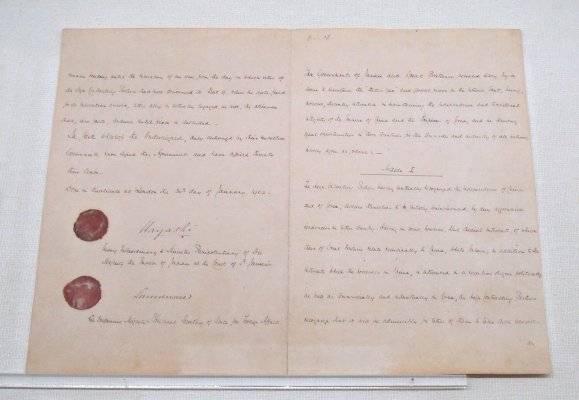 remain binding until the expiration of one year from the day on which either of
the High Contracting Parties shall have denounced it. But if, when the date fixed
for its expiration arrives, either ally is actually engaged in war, the alliance
shall, ipso facto, continue until peace is concluded.
In faith whereof the Undersigned, duly authorized by their respective
Governments have signed this Agreement and have affixed thereto
their Seals.
Done in duplicate at London the 30th day of January, 1902.
Hayashi
Envoy Extraordinary & Minister Plenipotentiary of His
Majesty the Emperor of Japan at the Court of St James's
Lansdowne
His Britannic Majesty's Principal Secretary of State for Foreign Affairs
The Governments of Japan and Great Britain, actuated solely by a
desire to maintain the status quo and general peace in the extreme East, being
moreover specially interested in maintaining the independence and territorial
integrity of the Empire of China and the Empire of Corea, and in securing
equal opportunities in those Countries for the commerce and industry of all nations,
hereby agree as follows:—
Article I.
The High Contracting Parties having mutually recognized the independence of China
and of Corea, declare themselves to be entirely uninfluenced by any aggressive
tendencies in either Country. Having in view however, their special interests, of which
those of Great Britain relate principally to China, while Japan, in addition to the
interests which she possesses in China, is interested in a peculiar degree politically
as well as commercially and industrially in Corea, the High Contracting Parties
recognize that it will be admissible for either of them to take such measures